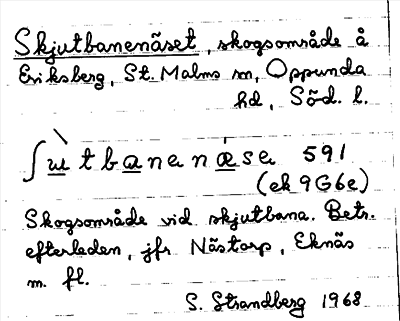 Skjutbanenäset, skogsområde å
Eriksberg, St. Malms sn, Oppunda
hd, Söd. l.
ʃu̲tba̲nenæ̲se 591
(ek 9G6e)
Skogsområde vid skjutbana. Betr.
efterleden, jfr Nästorp, Eknäs
m. fl.
S. Strandberg 1968